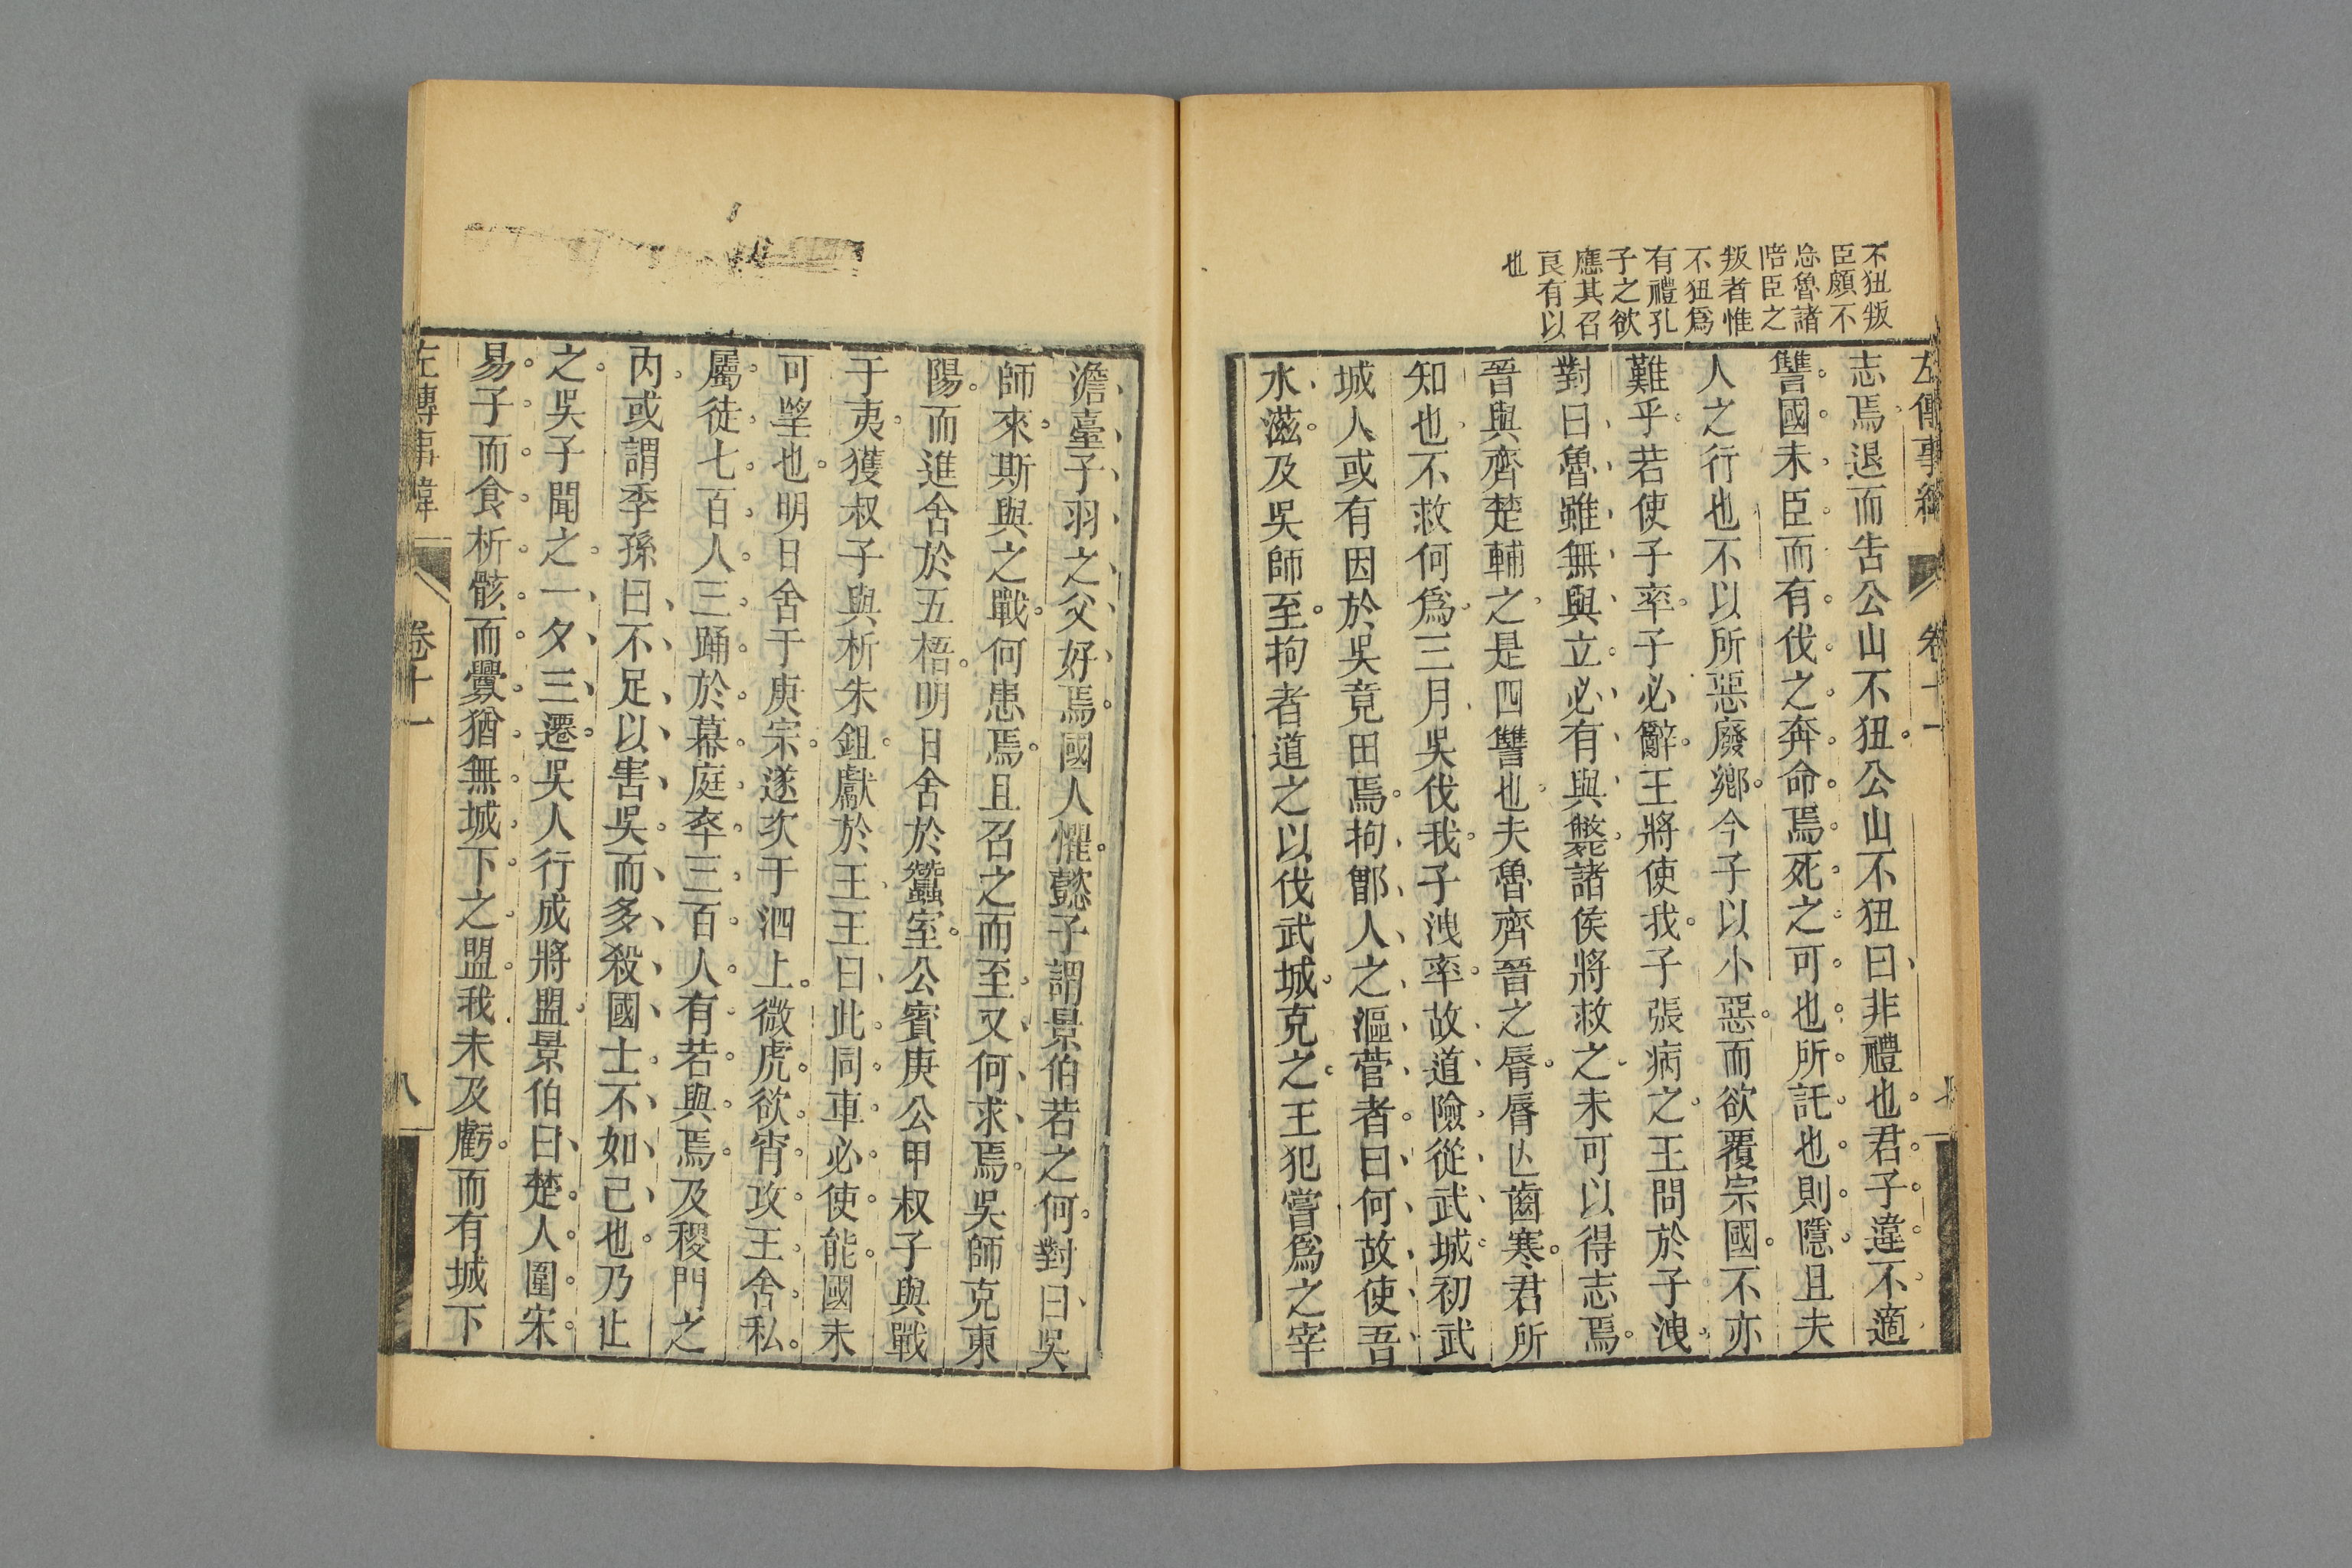 不狃叛
臣頗不
忘魯諸
陪臣之
叛者惟
不狃爲
有禮孔
子之欲
應其召
良有以
也
左傳事緯
卷十一
七
志焉退而告公山不狃公山不狃曰非禮也君子違不適
讐國未臣而有伐之奔命焉死之可也所託也則隱且夫
人之行也不以所惡廢鄉今子以小惡而欲覆宗國不亦
難乎若使子率子必辭王將使我子張病之王問於子洩
對曰魯雖無與立必有與斃諸侯將救之未可以得志焉
晉與齊楚輔之是四讐也夫魯齊晉之脣脣亾齒寒君所
知也不救何爲三月吳伐我子洩率故道險從武城初武
城人或有因於吳竟田焉拘鄫人之漚菅者曰何故使吾
水滋及吳師至拘者道之以伐武城克之王犯嘗爲之宰
澹臺子羽之父好焉國人懼懿子謂景伯若之何對曰吳
師來斯與之戰何患焉且召之而至又何求焉吳師克東
陽而進舍於五梧明日舍於蠶室公賓庚公甲叔子與戰
于夷獲叔子與析朱鉏獻於王王曰此同車必使能國未
可朢也明日舍于庚宗遂次于泗上微虎欲宵攻王舍私
屬徒七百人三踊於幕庭卒三百人有若與焉及稷門之
內或謂季孫曰不足以害吳而多殺國士不如已也乃止
之吳子聞之一夕三遷吳人行成將盟景伯曰楚人圍宋
易子而食析骸而爨猶無城下之盟我未及虧而有城下
左傳事緯
卷十一
八